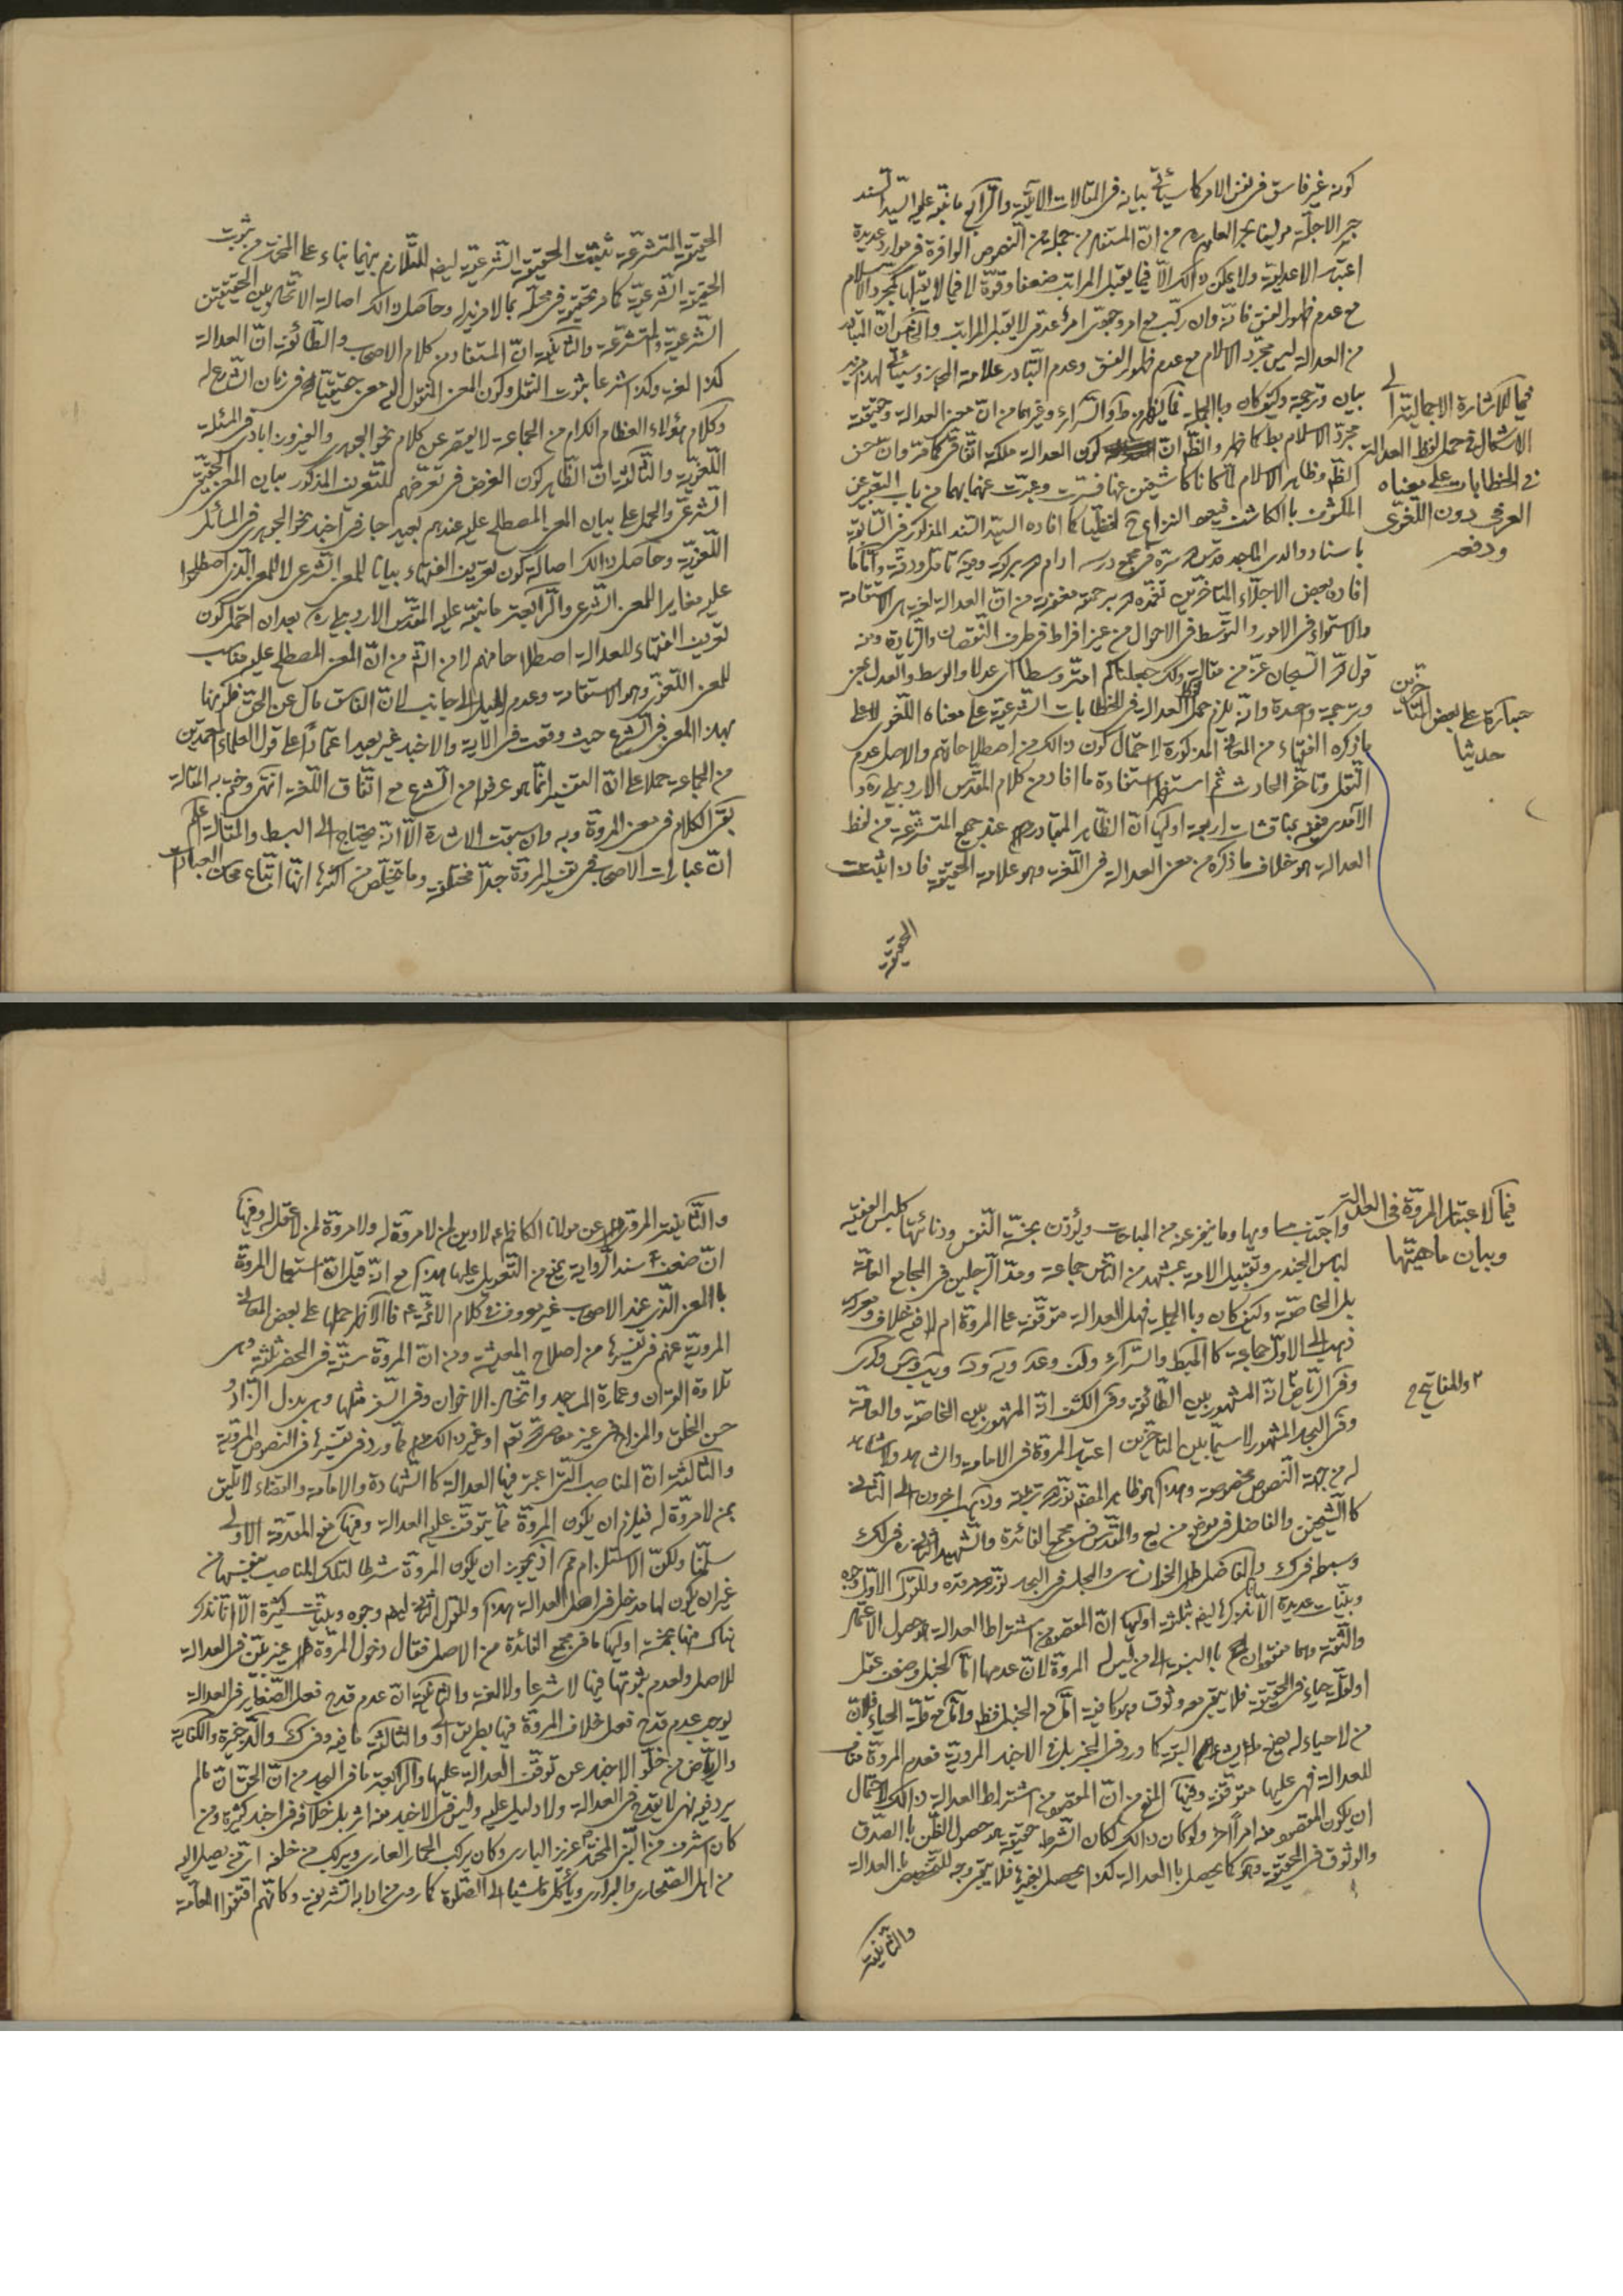 كونه غير فاسق فى نفس الامر كما سيأتى بيانه فى المقالات الآتية والرّابع ما نبّه عليه السيّد السند
حبر الاجلّة مولينا بحر العلوم ره من انّ المستفاد من جملة من النصوص الوافرة فى موارد عديدة
اعتبار الاعدليّة ولا يمكن ذالك الّا فيما يقبل المراتب ضعفا وقوّة لا فيما لا يقبلها كمجرّد الاسلام
مع عدم ظهور الفسق فانّه وان ركّب مع امر وجودىّ امر عدمى لا يقبل المراتب والخامس انّ المتبادر
من العدالة ليس مجرّد الاسلام مع عدم ظهور الفسق وعدم التّبادر علامة المجاز وسيأتى لهذا مزيد
بيان وترجمة وكيف كان وبالجملة فما يظهر من ط والسّرائر وغيرهما من انّ معنى العدالة وحقيقته
مجرّد الاسلام بط كما ظهر والظّ انّ كون العدالة ملكة اتّفاقى كما مرّ وانّ حسن
الظّ وظاهر الاسلام لمّا كانا كاشفين عنها فسّرت وعبّرت عنها بهما من باب التعبير عن
المكشوف بالكاشف فيعود النزاع ح لفظيّا كما افاده السيّد السّند المذكور فى السّابقة
باسناد والدى الماجد قدّس سرّه فى مجمع درسه ادام الله بركته وفيه تامّل ودقّة وامّا ما
افاده بعض الاجلّاء المتاخّرين تغمّده الله برحمته مغفرته من انّ العدالة لغة هى الاستقامة
والاستواء فى الامور والتوسّط فى الاحوال من غير افراط فى طرف النّقصان والزّيادة ومنه
قول الله السبحان عزّ من مقاله وكذلك جعلناكم امّة وسطا اى عدلا والوسط والعدل بمعنى
وترجمة واحدة وانّه يلزم حمل العدالة فى الخطابات الشّرعيّة على معناه اللّغوى لا على
ما ذكره الفقهاء من المعانى المذكورة لاحتمال كون ذالك من اصطلاحاتهم والاصل عدم
النّقل وتاخّر الحادث ثم استظهر استفادة ما افاد من كلام المقدّس الاردبيلى ره
الآمدى ففيه مناقشات اربعة اوليها انّ الظّاهر المتبادر عند جميع المتشرّعة من لفظ
العدالة هو خلاف ما ذكره من معنى العدالة فى اللّغة وهو علامة الحقيقة فاذا اثبت
الحقيقة
فيما للاشارة الاجمالية الى
الاشكال فى حمل لفظ العدالة
فى الخطابات على معناه
العرفى دون اللغوى
ودفعه
عبارة على بعض المتاخّرين
حديثا
الحقيقة المتشرّعة ثبتت الحقيقة الشّرعيّة ايضا للتّلازم بينهما بناء على المختار من ثبوت
الحقيقة الشّرعيّة كما مرّ تحقيقه فى محلّه بما لا مزيد له وحاصل ذالك اصالة الاتّحاد بين الحقيقتين
الشّرعيّة والمتشرّعة والثّانية انّ المستفاد من كلام الاصحاب والطّائفة انّ العدالة
كذا لغة وكذا شرعا بثبوت النّقل وكون المعنى المنقول اليه معنى حقيقيّا له فى زمان الشّارع
وكلام هؤلاء العظام الكرام من الجماعة لا يقصر عن كلام نحو الجوهرى والفيروزابادى فى المسئلة
اللّغويّة والثّالثة انّ الظّاهر كون الغرض فى تعرّضهم للتّعريف المذكور بيان المعنى الحقيقى
الشّرعى والحمل على بيان المعنى المصطلح عليه عندهم بعيد اجازه فى اخبار نحو الجوهرى فى المسائل
اللّغويّة وحاصل ذالك اصالة كون تعريف الفقهاء بيانا للمعنى الشّرعى لا للمعنى الّذى اصطلحوا
عليه مغايرا للمعنى الشّرعى والرّابعة ما نبّه عليه المقدّس الاردبيلى ره بعد ان احتمل كون
تعريف الفقهاء للعدالة اصطلاحا منهم لا من الشّرع من انّ المعنى المصطلح عليه مناسب
للمعنى اللّغوى وهو الاستقامة وعدم الميل الى جانب لانّ الفاسق مال عن الحقّ فكونها
بهذا المعنى فى الشّرع حيث وقعت فى الآية والاخبار غير بعيد اعتمادا على قول العلماء المعتمدين
من الجماعة حملا على انّ التفسير انّما هو عرفا من الشّرع مع اتّفاق اللّغة انتهى وختم به المقالة
بقى الكلام فى معنى المروّة وبه وان سبقت الاشارة الّا انّه يحتاج الى البسط والمقالة
انّ عبارات الاصحاب فى تفسير المروّة جدّا مختلفة وما تلخّص من اكثرها انّها اتّباع محاسن العبادات
فيما لاعتبار المروّة فى العدالة
وبيان ماهيّتها
واجتناب مساويها وما ينفر عنه من المباحات ويؤذن بخسّة النّفس ودنائتها كلبس الفقيه
لباس الجندى وتقبيل الامة بمشهد من النّاس جماعة ومدّ الرّجلين فى المجامع العامّة
بل الخاصّة وكيف كان وبالجملة فهل العدالة متوقّفة على المروّة ام لا فيه خلاف ومعركة
ذهب الى الاوّل جماعة كالمبسط والسّرائر
وفى الرّياض انّه المشهور بين الطّائفة وفى الكشف انّه المشهور بين الخاصّة والعامّة
وفى البحار المشهور لا سيّما بين المتاخّرين اعتبار المروّة فى الامامة والشاهد ولا شاهد
له من جهة النّصوص مخصوصة وهذا هو ظاهر المصنّف نوّر الله تربته وذهب اخرون الى الثّانى
كالشّيخين والفاضل فى موضع من يع والمقدّس فى مجمع الفائدة والشّهيد الثانى ره فى لك
وسبطه فى ك والفاضل الخوانسارى والمجلسى فى البحار نوّر الله مرقده وللقول الاوّل وجوه
وبيّنات عديدة الّا انّا نذكر هنا ثلثة اوليها انّ المقصود من اشتراط العدالة هو حصول الاعتماد
والثّقة وهما مفقودان بالنسبة الى من ليس له المروّة لانّ عدمها امّا لخبل وضعف عقل
او لقلّة حياء فى الحقيقة فلا يبقى معه وثوق وهو كافية امّا مع الخبل فظ وامّا مع قلّة الحياء فلانّ
من لا حياء له يصنع ما يشاء البتّة كما ورد فى الخبر بل فى الاخبار المرويّة فعدم المروّة مناف
للعدالة فهى عليها متوقّفة وفيها المنع من انّ المقصود من اشتراط العدالة ذالك لاحتمال
ان يكون المقصود منه امرا آخر ولو كان ذالك لكان الشّرط حقيقة هو حصول الظّن بالصّدق
والوثوق فى الحقيقة وهو كما يحصل بالعدالة كذا يحصل بغيرها فلا يبقى وجه للتّخصيص بالعدالة
والثّانية
٢ والمفاتيح ح
والثّانية المروىّ عن مولانا الكاظم ع لا دين لمن لا مروّة له ولا مروّة لمن لا عقل له وفيها
انّ ضعف سند الرّواية يمنع من التعويل عليها هذا مع انّه قيل انّ استعمال المروّة
بالمعنى الّذى عند الاصحاب غير معروف فى كلام الائمّة ع فالاظهر حملها على بعض المعانى
المرويّة عنهم فى تفسيرها من اصلاح المعيشة ومن انّ المروّة ستّة فى الحضر ثلثة وهى
تلاوة القرآن وعمارة المساجد واتّخاذ الاخوان وفى السّفر مثلها وهى بذل الزّاد و
حسن الخلق والمزاح فى غير معاصى الله تعالى او غير ذالك ممّا ورد فى تفسيرها فى النّصوص المرويّة
والثّالثة انّ المناصب الّتى اعتبر فيها العدالة كالشّهادة والامامة والقضاء لا تليق
بمن لا مروّة له فيلزم ان يكون المروّة ممّا يتوقّف عليه العدالة وفيها منع المقدّمة الاولى
سلّمنا ولكنّ الاستلزام مم اذ يجوز ان يكون المروّة شرطا لتلك المناصب بنفسها من
غير ان يكون لها مدخل فى اصل العدالة هذا وللقول الثّانى ايضا وجوه وبيّنات كثيرة الّا انّا نذكر
هناك منها خمسة اوليها ما فى مجمع الفائدة من الاصل فقال دخول المروّة غير بيّن فى العدالة
للاصل ولعدم ثبوتها فيها لا شرعا ولا لغة والثّانية انّ عدم قدح فعل الصّغاير فى العدالة
يوجب عدم قدح فعل خلاف المروّة فيها بطريق اولى والثّالثة ما فيه وفى ك والذّخيرة والكفاية
والرّياض من خلّو الاخبار عن توقّف العدالة عليها والرّابعة ما فى البحار من انّ الحقّ انّ ما لم
يرد فيه نهى لا يقدح فى العدالة ولا دليل عليه وليس فى الاخبار منه اثر بل خلافه فى اخبار كثيرة ومن
كان اشرف من النّبى المختار عزيز البارى وكان يركب الحمار العارى ويركب من خلفه
من اهل الصّحارى والبرارى وياكل ماشيا الى الصّلوة كما روى من ادابه الشّريفة وكانّهم اقتفوا العامّة